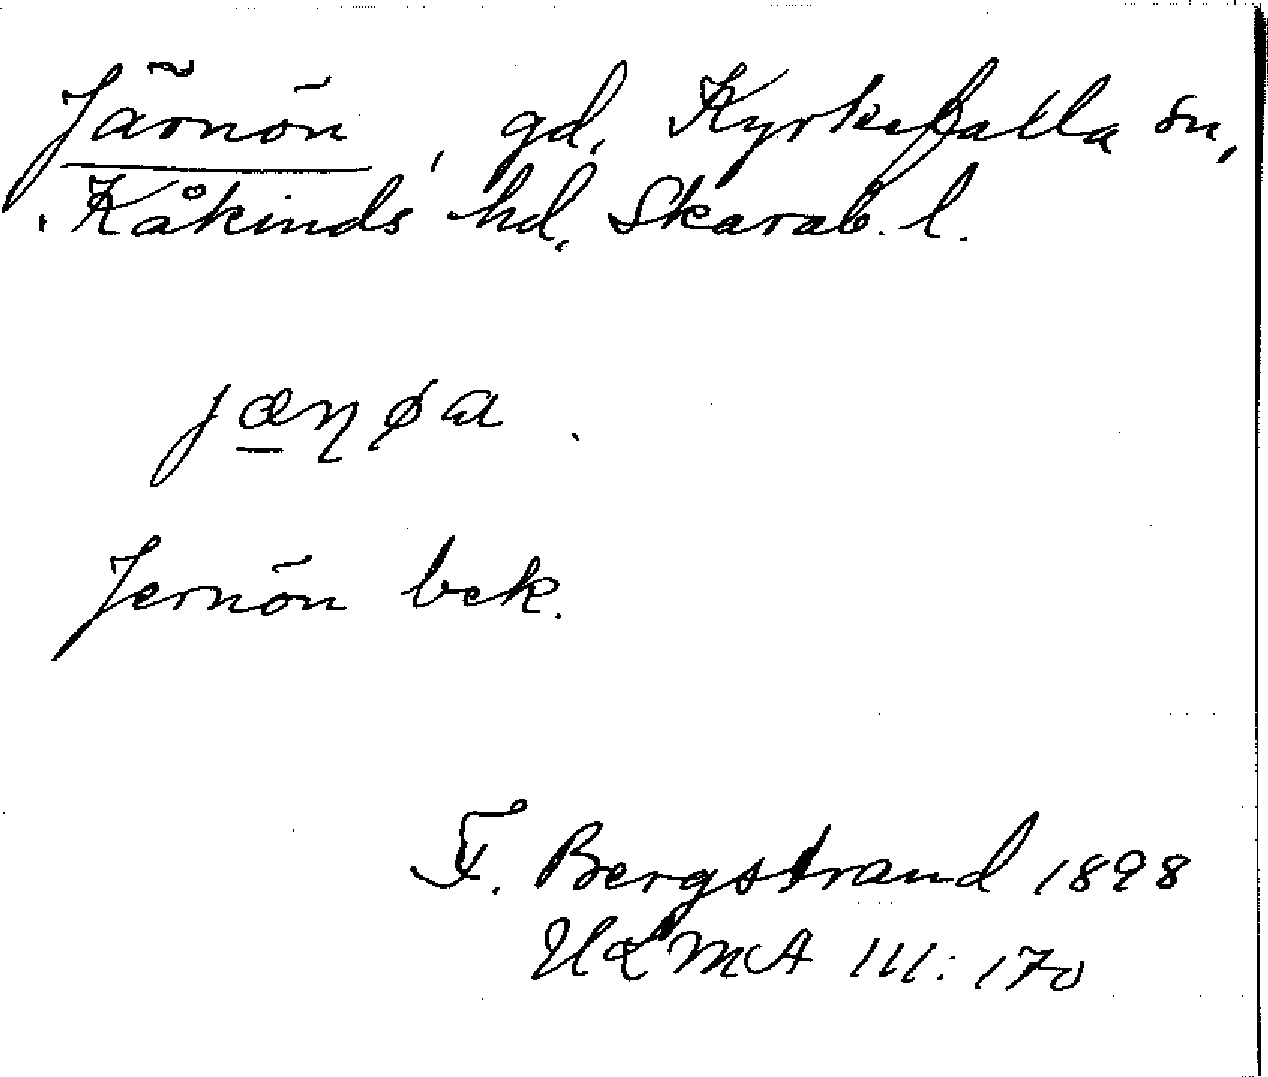 Järnön, gd, Kyrkefalla sn,
Kåkinds hd, Skarab. l.
jæŋøa
Jernön bek.
F. Bergstrand 1898
ULMA 111:170